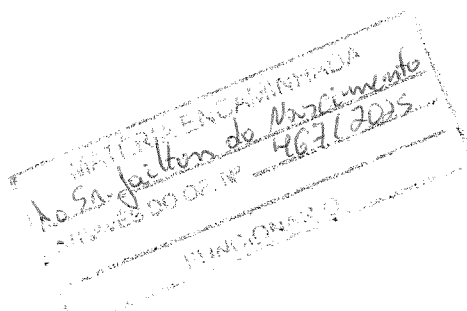 MATÉRIA ENCAMINHADA
Ao Sr. Jailton do Nascimento
ATRAVÉS DO OF. Nº 467/2025
FUNCIONÁRIO